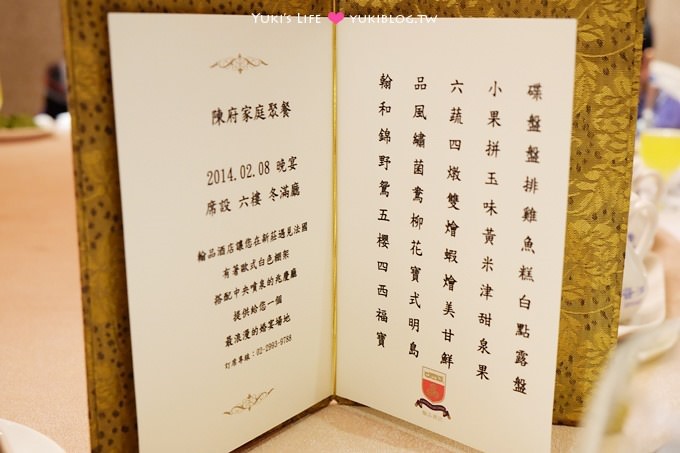 YUKI'S LIFE ❤ YUKIBLOG.TW
陳府家庭聚餐
2014.02.08 晚宴
席設 六樓 冬滿廳
翰品酒店讓您在新莊遇見法國
有著歐式白色棚架
搭配中央噴泉的兆慶廳
提供給您一個
最浪漫的婚宴場地
訂席專線:02-2993-9788
翰品六小碟
和風蔬果盤
錦繡四拼盤
野菌燉玉排
鴛鴦雙味雞
五柳燴黃魚
櫻花蝦米糕
四寶燴津白
西式美甜點
福明甘泉露
寶島鮮果盤